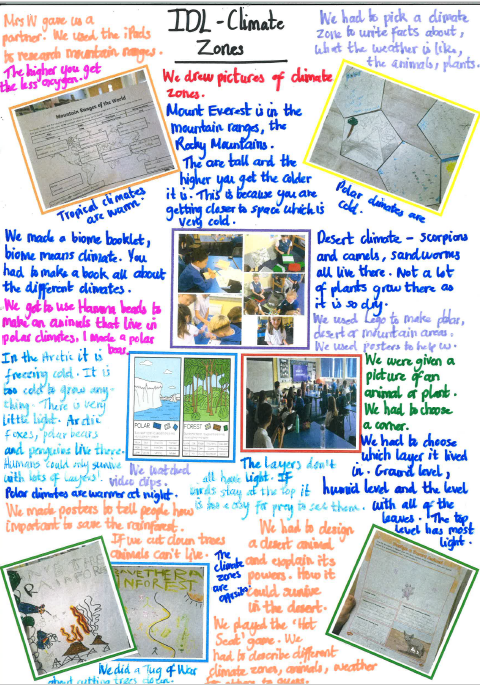 IDL - Climate
Zones
Mrs W gave us a
partner. We used the iPads
to research mountain ranges.
The higher you get
the less oxygen.
We had to pick a climate
zone to write facts about,
what the weather is like,
the animals, plants.
We drew pictures of climate
zones.
Mount Everest is in the
mountain ranges, the
Rocky Mountains.
The are tall and the
higher you get the colder
it is. This is because you are
getting closer to space which is
very cold.
Mountain Ranges of the World
Tropical climates
are warm.
Polar
Polar climates are
cold.
We made a biome booklet,
biome means climate. You
had to make a book all about
the different climates.
We got to use Hamma beads to
make an animals that live in
polar climates, I made a polar
bear.
Desert climate - scorpions
and camels, sandworms
all live there. Not a lot
of plants grow there as
it is so dry.
We used Lego to make polar,
desert or mountain areas.
We used posters to help us.
In the Arctic it is
freezing cold. It is
too cold to grow any-
thing. There is very
little light. Arctic
foxes, polar bears
and penguins live there.
Humans could only survive
with lots of layers!
Polar climates are warmer at night.
POLAR
FOREST
We watched
video clips.
We were given a
picture of an
animal or plant.
We had to choose
a corner.
We had to choose
which layer it lived
in. Ground level,
humid level and the level
with all of the
leaves. The top
level has most
light.
The layers don't
all have light. If
birds stay at the top it
is too easy for prey to see them.
We made posters to tell people how
important to save the rainforest.
If we cut down trees
animals can't live.
The
climate
zones
are
opposite
We had to design
a desert animal
and explain its
powers. How it
could survive
in the desert.
We played the 'Hot
Seat' game. We
had to describe different
climate zones, animals, weather
for others to guess.
SAVE THE RA
INFOREST
We did a Tug of War
about cutting trees down.